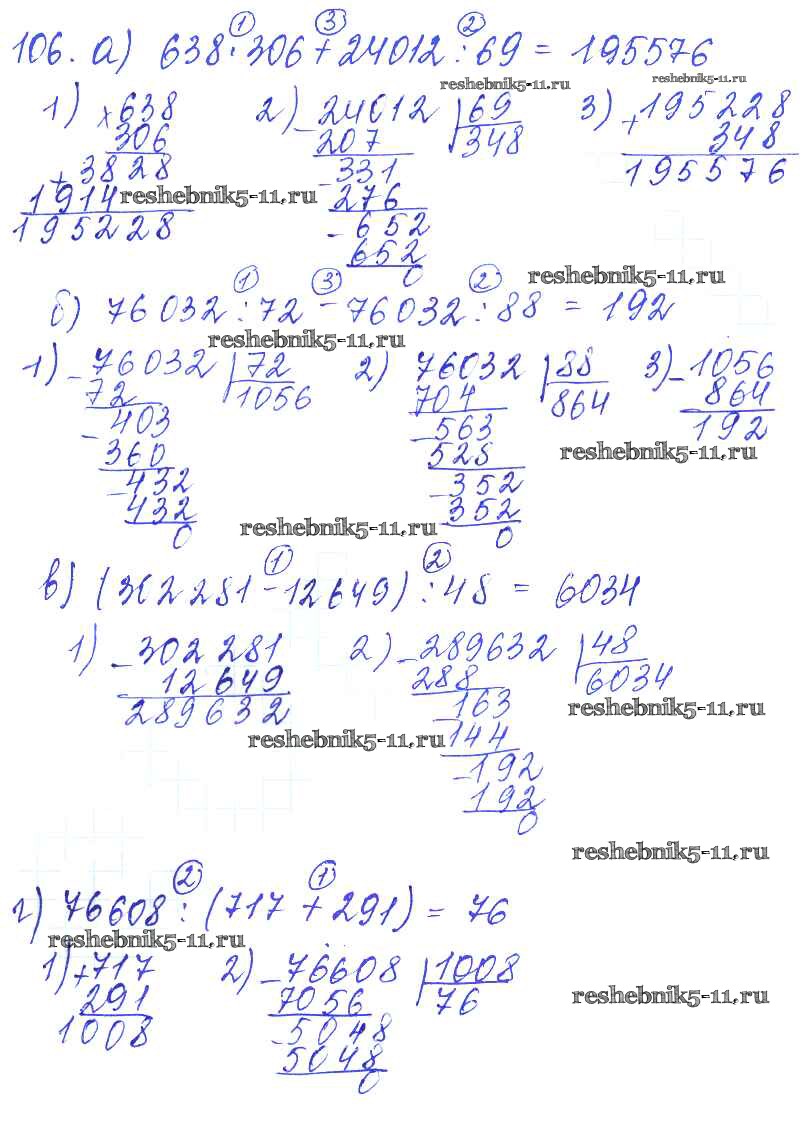 ① ③ ②
106. а) 638·306+24012:69 = 195576
reshebnik5-11.ru reshebnik5-11.ru
1) ×638 2) -24012 |69 3) +195228
306 207 348 348
+3828 -331 195576
1914 reshebnik5-11.ru 276
195228 -652
652
0
reshebnik5-11.ru
① ③ ②
б) 76032:72 - 76032:88 = 192
reshebnik5-11.ru
1) -76032 |72 2) 76032 |88 3) -1056
72 1056 704 864 864
-403 -563 192
360 528 reshebnik5-11.ru
-432 -352
432 352
0 0
reshebnik5-11.ru
① ②
в) (302281-12649):48 = 6034
1) -302281 2) -289632 |48
12649 288 6034
289632 -163 reshebnik5-11.ru
reshebnik5-11.ru 144
-192
192
0
reshebnik5-11.ru
② ①
г) 76608:(717+291) = 76
reshebnik5-11.ru
1) +717 2) -76608 |1008
291 7056 76 reshebnik5-11.ru
1008 -5048
5048
0